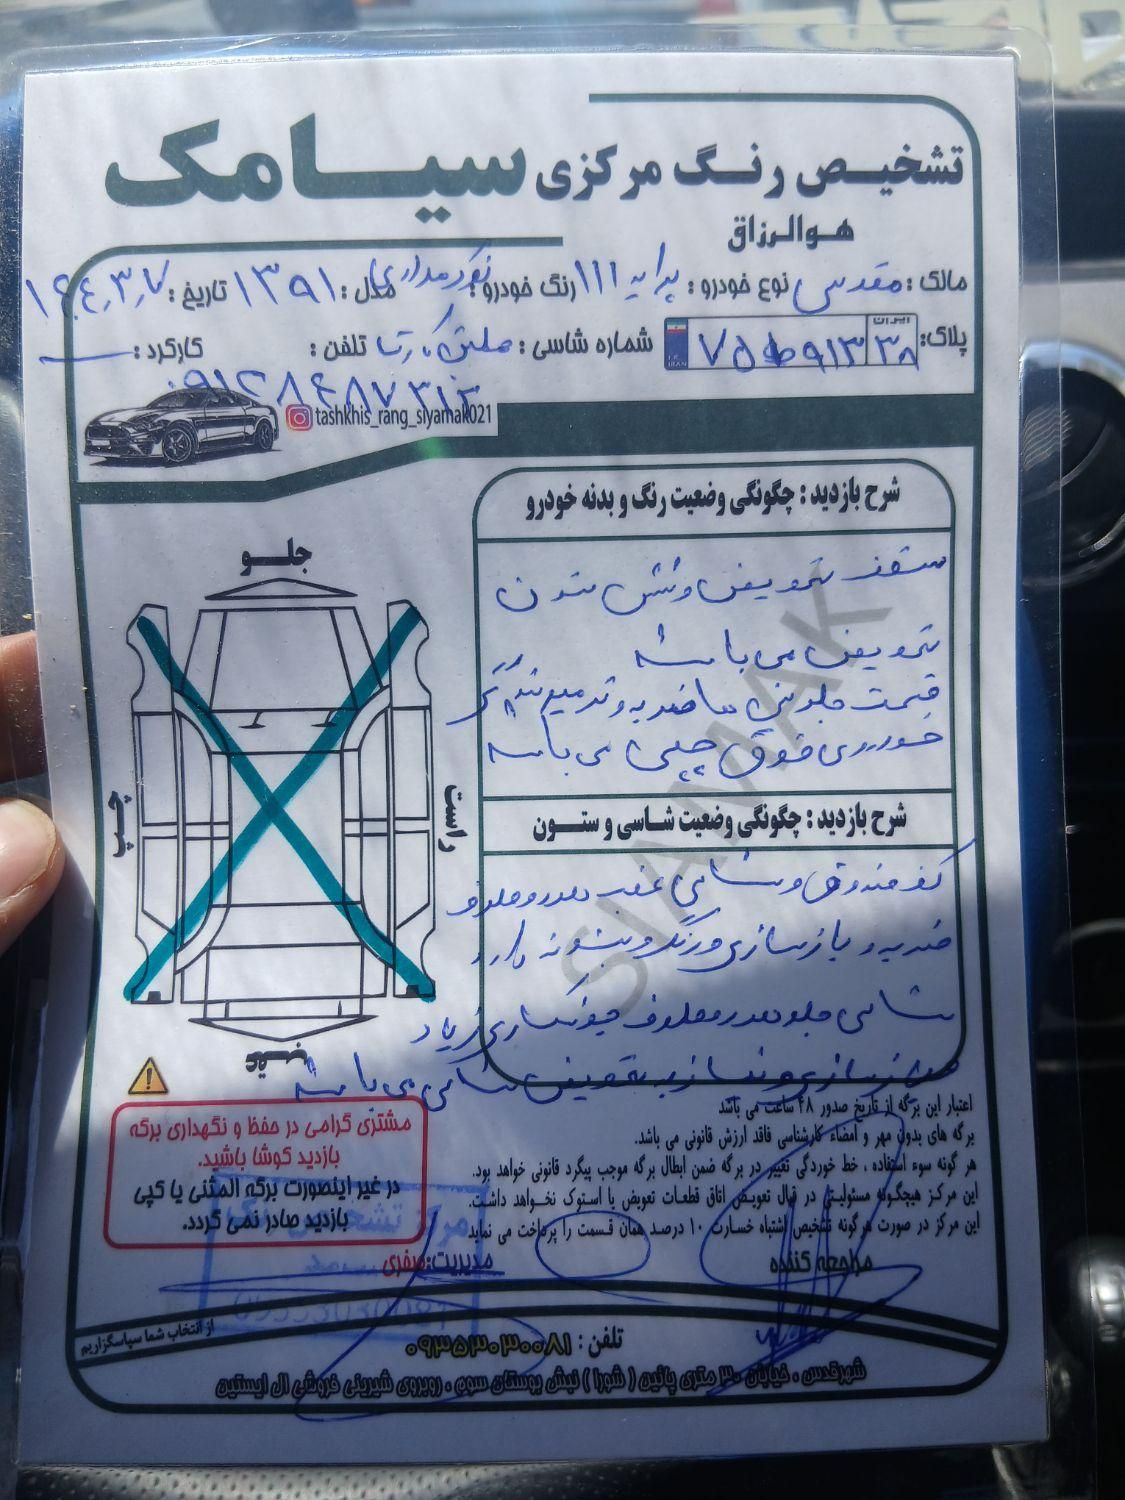 تشخیص رنگ مرکزی سیامک
هوالرزاق
مالک : مقدسی نوع خودرو : پراید 111 رنگ خودرو : نوک مدادی مدل : ۱۳۹۱ تاریخ :
پلاک: ایران ۳۸ ۹۱۳ ط ۷۵ I.R. IRAN شماره شاسی : تلفن : کارکرد :
tashkhis_rang_siyamak021
شرح بازدید : چگونگی وضعیت رنگ و بدنه خودرو
سقف تعویض و شش ستون
تعویض می باشد
قسمت جلو ضربه و ترمیم
خودروی فوق چپی می باشد
جلو
چپ
راست
عقب
شرح بازدید : چگونگی وضعیت شاسی و ستون
کف صندوق و شاسی عقب هردو طرف
ضربه و بازسازی و رنگ و بتونه دارد
شاسی جلو هردو طرف جوشکاری زیاد
و بازسازی و نیاز به تعویض شاسی می باشد
SIAMAK
مشتری گرامی در حفظ و نگهداری برگه
بازدید کوشا باشید.
در غیر اینصورت برگه المثنی یا کپی
بازدید صادر نمی گردد.
اعتبار این برگه از تاریخ صدور ۴۸ ساعت می باشد
برگه های بدون مهر و امضاء کارشناسی فاقد ارزش قانونی می باشد.
هر گونه سوء استفاده ، خط خوردگی تغییر در برگه ضمن ابطال برگه موجب پیگرد قانونی خواهد بود.
این مرکز هیچگونه مسئولیتی در قبال تعویض اتاق قطعات تعویض یا استوک نخواهد داشت.
این مرکز در صورت هرگونه تشخیص اشتباه خسارت ۱۰ درصد همان قسمت را پرداخت می نماید
مراجعه کننده
مدیریت: صفری
از انتخاب شما سپاسگزاریم
تلفن : ۰۹۳۵۳۰۳۰۰۸۱
شهرقدس ، خیابان ۳۰ متری پائین ( شورا ) نبش بوستان سوم ، روبروی شیرینی فروشی ال ایستین